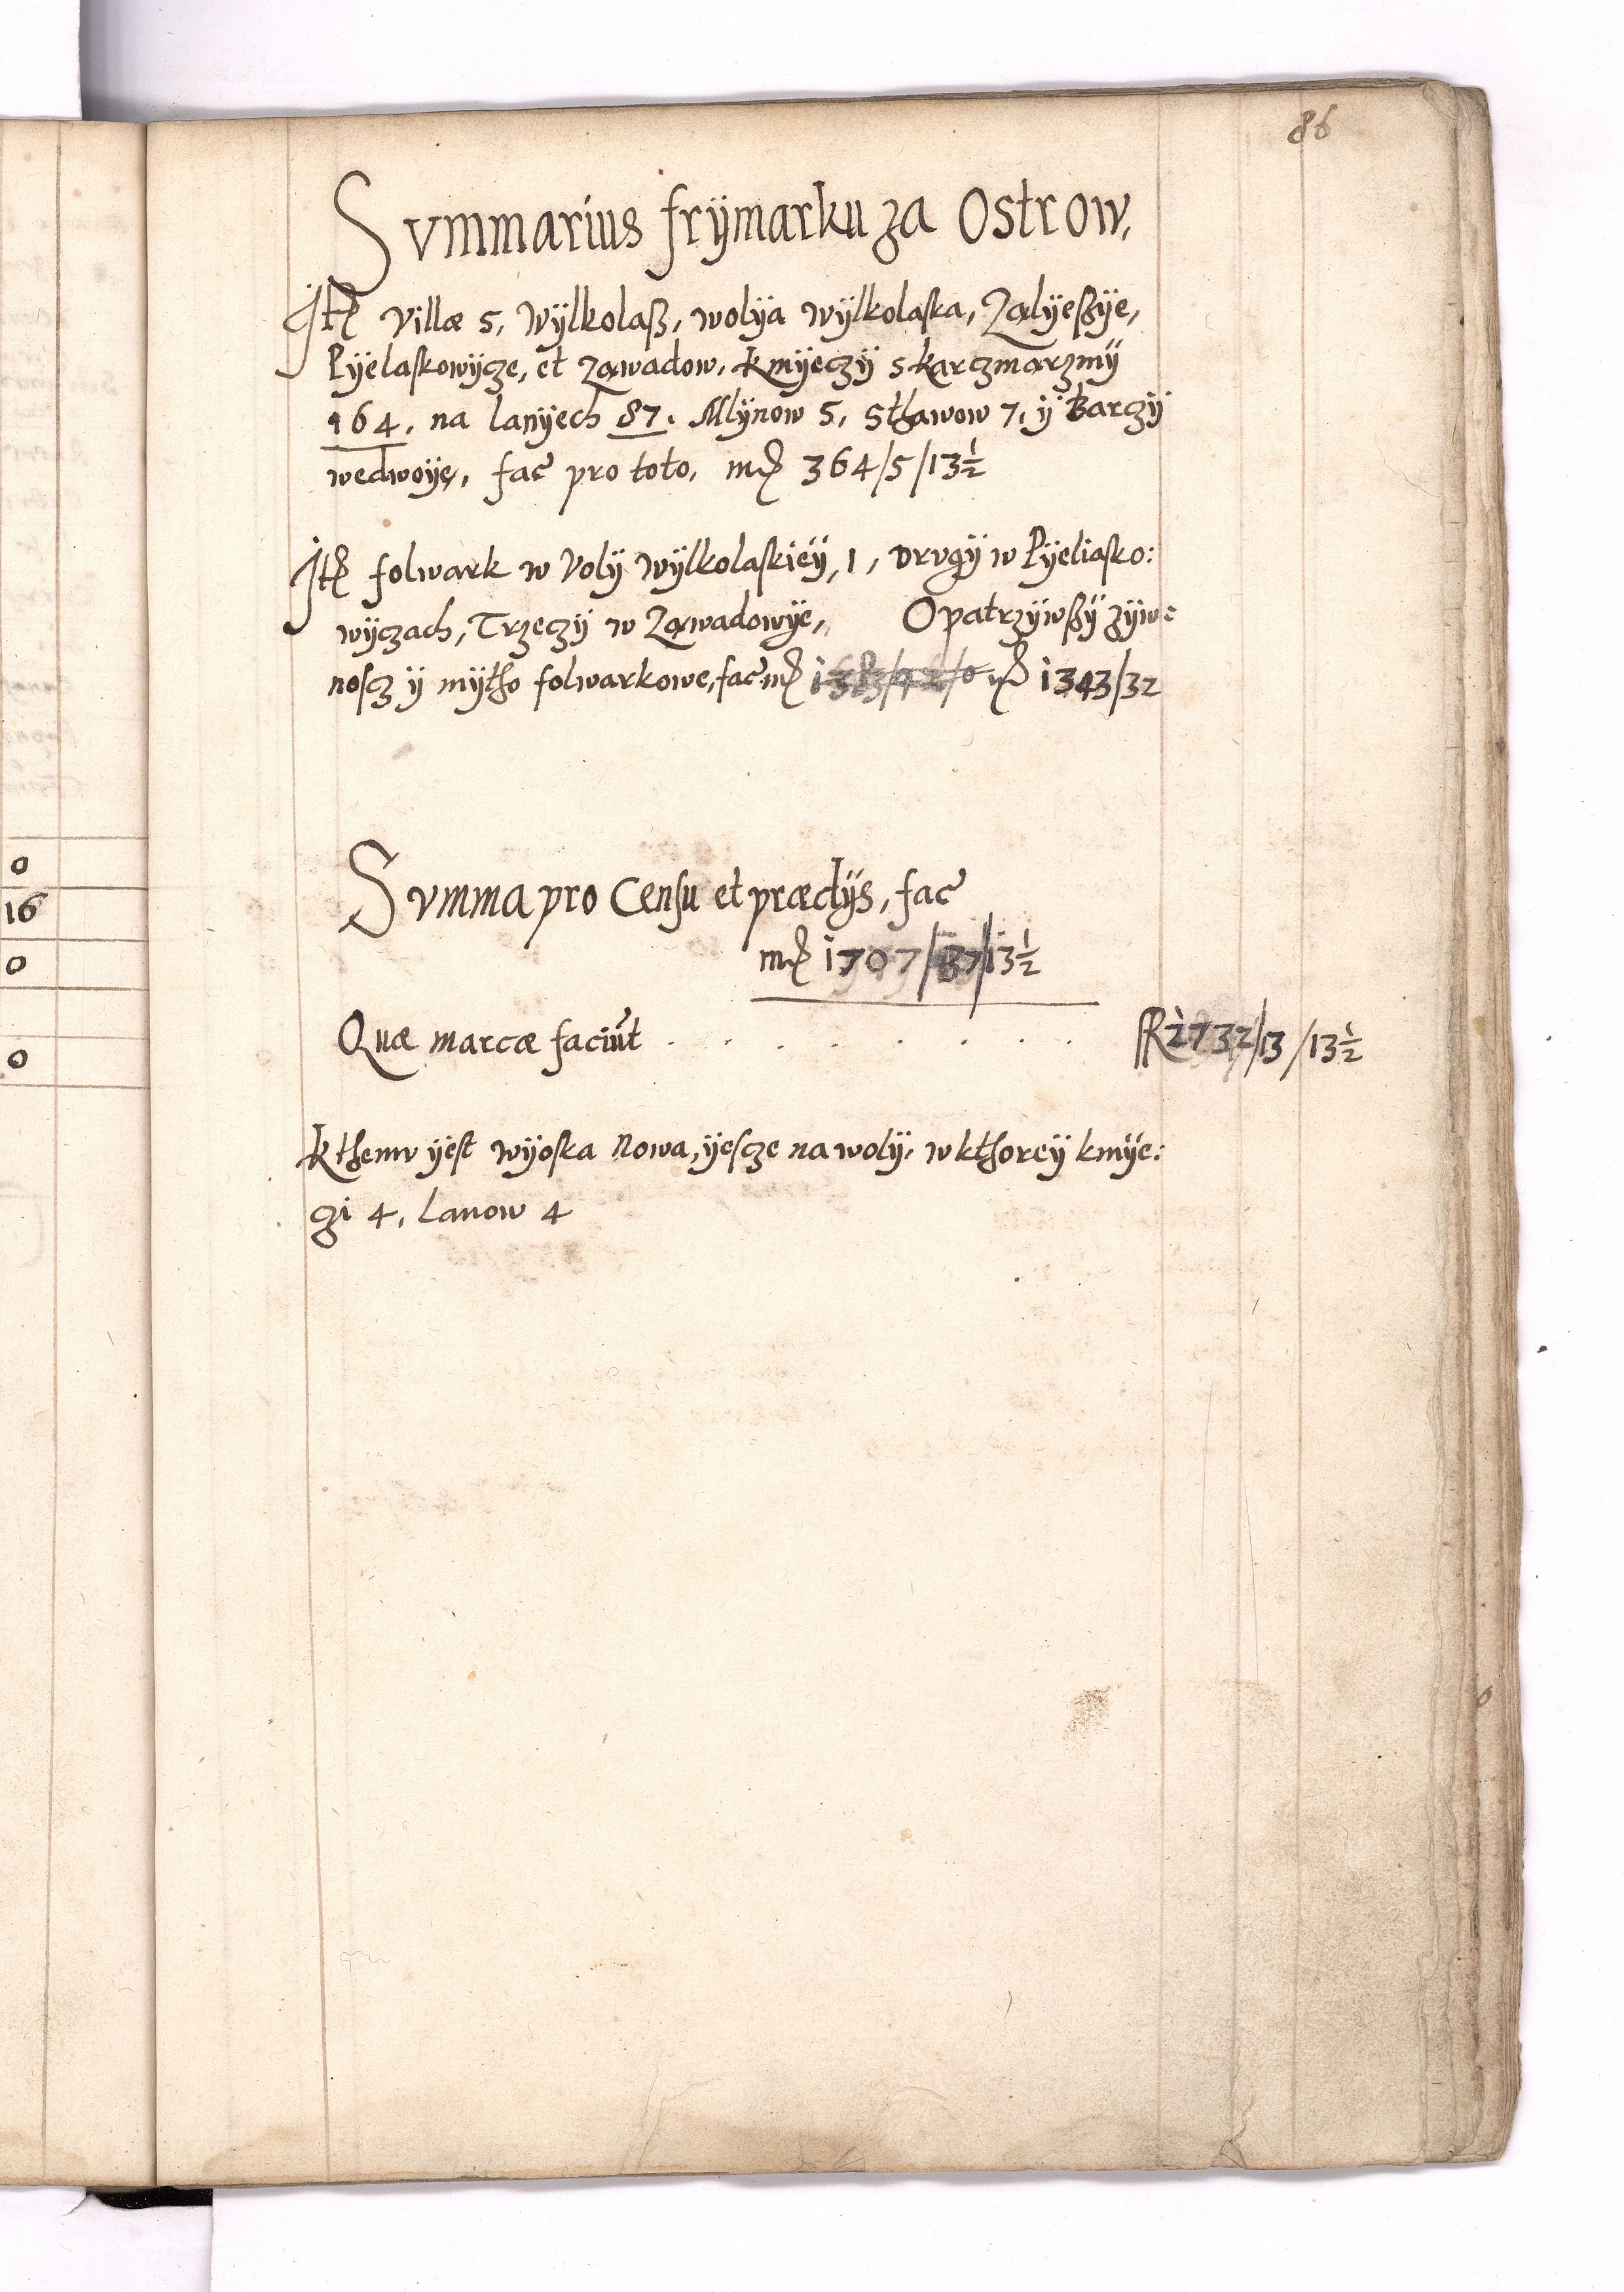 86
Svmmarius frÿmarku za Ostrow,
Jtē Villæ 5, Wÿlkolaß, wolÿa wÿlkolaska, Zalÿeßÿe,
Pÿelaskowÿcze, et zawadow, kmÿeczÿ skarczmarzmÿ
164, na lanÿech 87. Mlÿnow 5, Sthawow 7, ÿ Barczÿ
wedwoÿe, fac̃ pro toto, mr̃ 364/5/13½
Jtē folwark w Volÿ Wÿlkolaskieÿ, 1, Drvgÿ w Pÿeliasko:
wÿczach, Trzeczÿ w Zawadowÿe, Opatrzÿwßÿ zÿw:
noscz ÿ mÿtho folwarkowe, fac̃ mr̃ mr̃ 1343/32
Svmma pro Censu et prædÿs, fac̃
mr̃ 1707/37/13½
Quæ marcæ faciūt . . . . . . . . R 2732/13/13½
kthemv ÿest wÿoska Nowa, ÿescze na wolÿ, w kthoreÿ kmÿe:
czi 4, Lanow 4
0
16
0
0